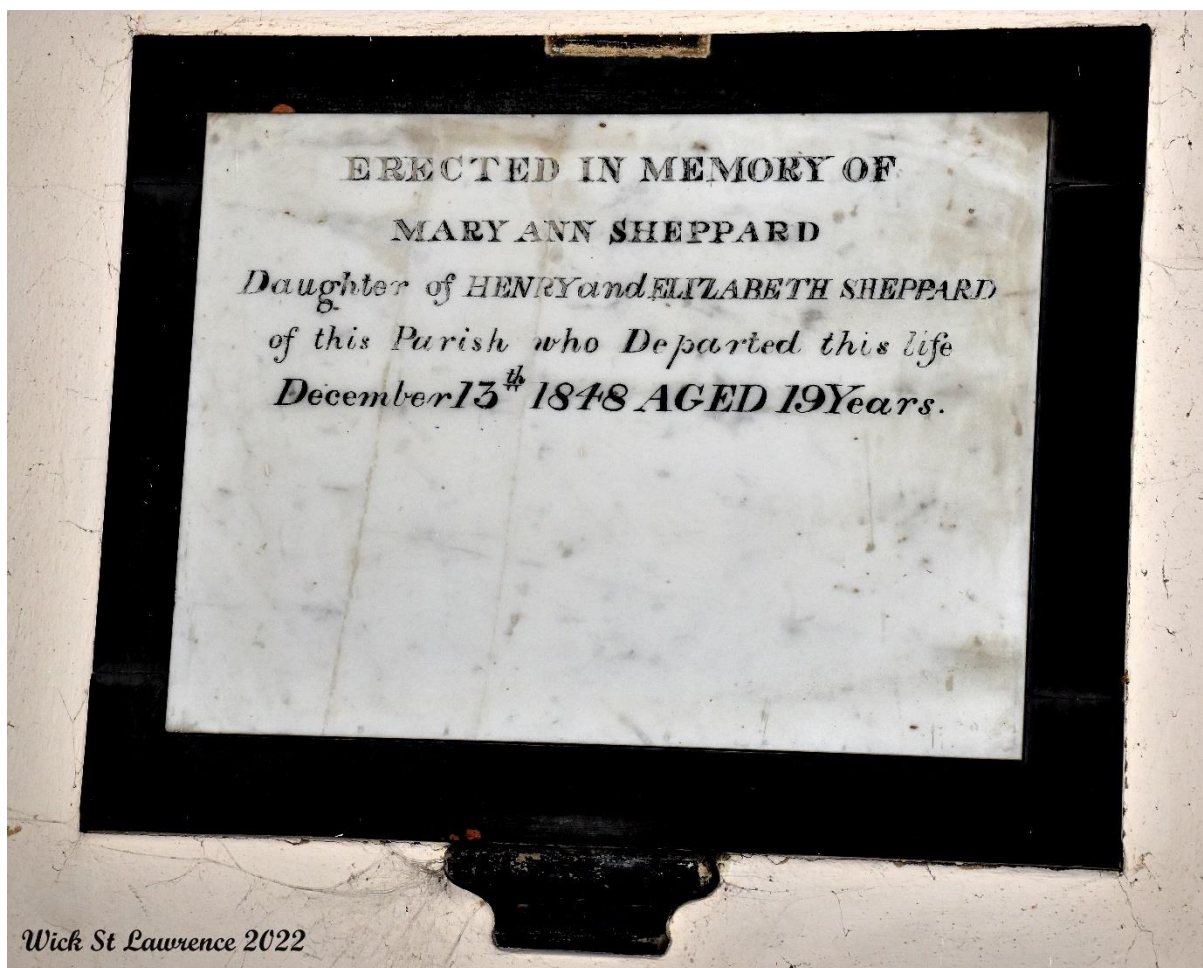 ERECTED IN MEMORY OF
MARY ANN SHEPPARD
Daughter of HENRY and ELIZABETH SHEPPARD
of this Parish who Departed this life
December 13th 1848 AGED 19 Years.
Wick St Lawrence 2022